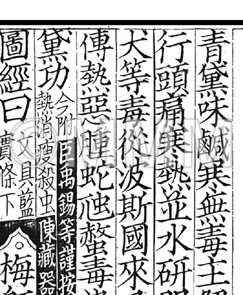 青黛味鹹寒無毒主解
行頭痛寒熱並水研
犬等毒從波斯國來
傅熱惡腫蛇虺螫毒
黛功
今附臣禹錫等謹按
熱消瘦殺虫陳藏器
圖經曰
文具藍
實條下
梅